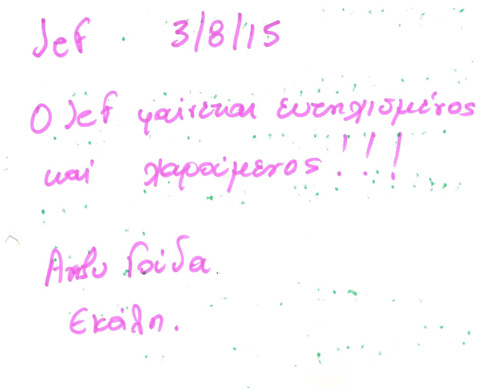 Jef 3/8/15
Ο Jef φαίνεται ευτηχισμένος
και χαρούμενος!!!
Γούδα
Εκάλη.